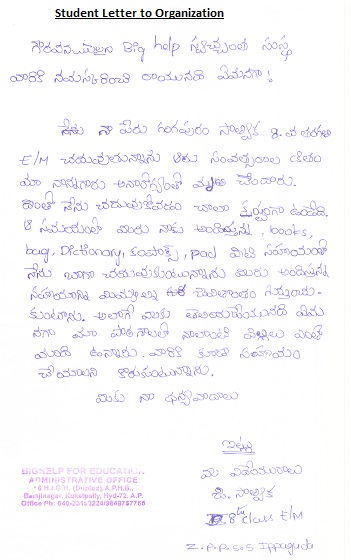 Student Letter to Organization
గౌరవనీయులైన Big help స్వచ్ఛంద సంస్థ
వారికి నమస్కరించి రాయునది ఏమనగా!
నేను నా పేరు గంగపురం సాత్విక 8. వ తరగతి
E/M చదువుతున్నాను సంవత్సరాల క్రితం
మా నాన్నగారు అనారోగ్యంతో మృతి చెందారు.
దాంతో నేను చదువుకోవడం చాలా కష్టంగా ఉండేది.
ఆ సమయంలో మీరు నాకు అందిస్తున్న, books,
bag, Dictionary, కంపాక్స్, pad వీటి సహాయంతో
నేను బాగా చదువుకుంటున్నాను మీరు అందిస్తున్న
సహాయాన్ని
కుంటున్నాను. అలాగే మీకు తెలియజేయునది ఏమ
నగా మా పాఠశాలలో నాలాంటి పిల్లలు ఎంతో
మంది ఉన్నారు. వారికి కూడా సహాయం
చేయాలని కోరుకుంటున్నాను.
మీకు నా ధన్యవాదాలు
ఇట్లు
మీ విధేయురాలు
జి. సాత్విక
8th class E/M
Z.P.H.S Ippaguda
BIGHELP FOR EDUCATION
ADMINISTRATIVE OFFICE
6 H.I.G.H. (Duplex) A.P.H.B.,
Baghjinagar, Kukatpally, Hyd-72. A.P.
Office Ph: